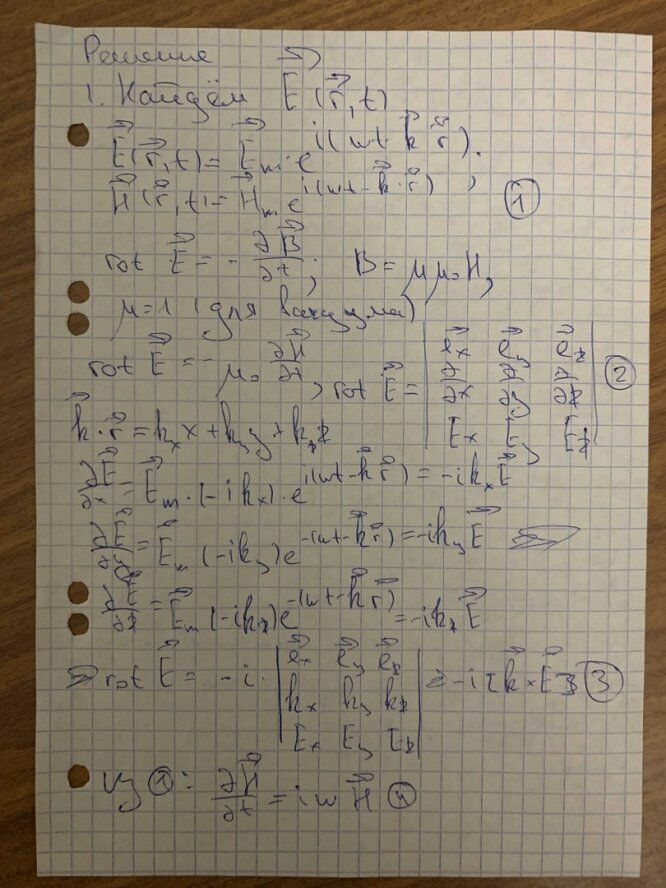 Решение
1. Найдём E⃗(r⃗,t)
E⃗(r⃗,t) = E⃗ₘ·e^{i(ωt k⃗ r⃗)}.
H⃗(r⃗,t) = H⃗ₘ e^{i(ωt-k⃗·r⃗)}, ①
rot E⃗ = -∂B⃗/∂t; B = μμ₀H,
μ=1 (для вакуума)
rot E⃗ = -μ₀ ∂H⃗/∂t, rot E⃗ = |e⃗x e⃗y e⃗z; ∂/∂x ∂/∂y ∂/∂z; Ex Ey Ez| ②
k⃗·r⃗ = kₓx + k_y y + k_z z
∂E⃗/∂x = E⃗ₘ·(-ikₓ)·e^{i(ωt-k⃗r⃗)} = -ikₓE⃗
∂E⃗/∂y = E⃗ₘ(-ik_y)e^{-(ωt-k⃗r⃗)} = -ik_yE⃗ ⇒
∂E⃗/∂z = E⃗ₘ(-ik_z)e^{-(ωt-k⃗r⃗)} = -ik_zE⃗
⇒ rot E⃗ = -i·|e⃗x e⃗y e⃗z; kx ky kz; Ex Ey Ez| = -i[k⃗×E⃗] ③
Из ①: ∂H⃗/∂t = iωH⃗ ④